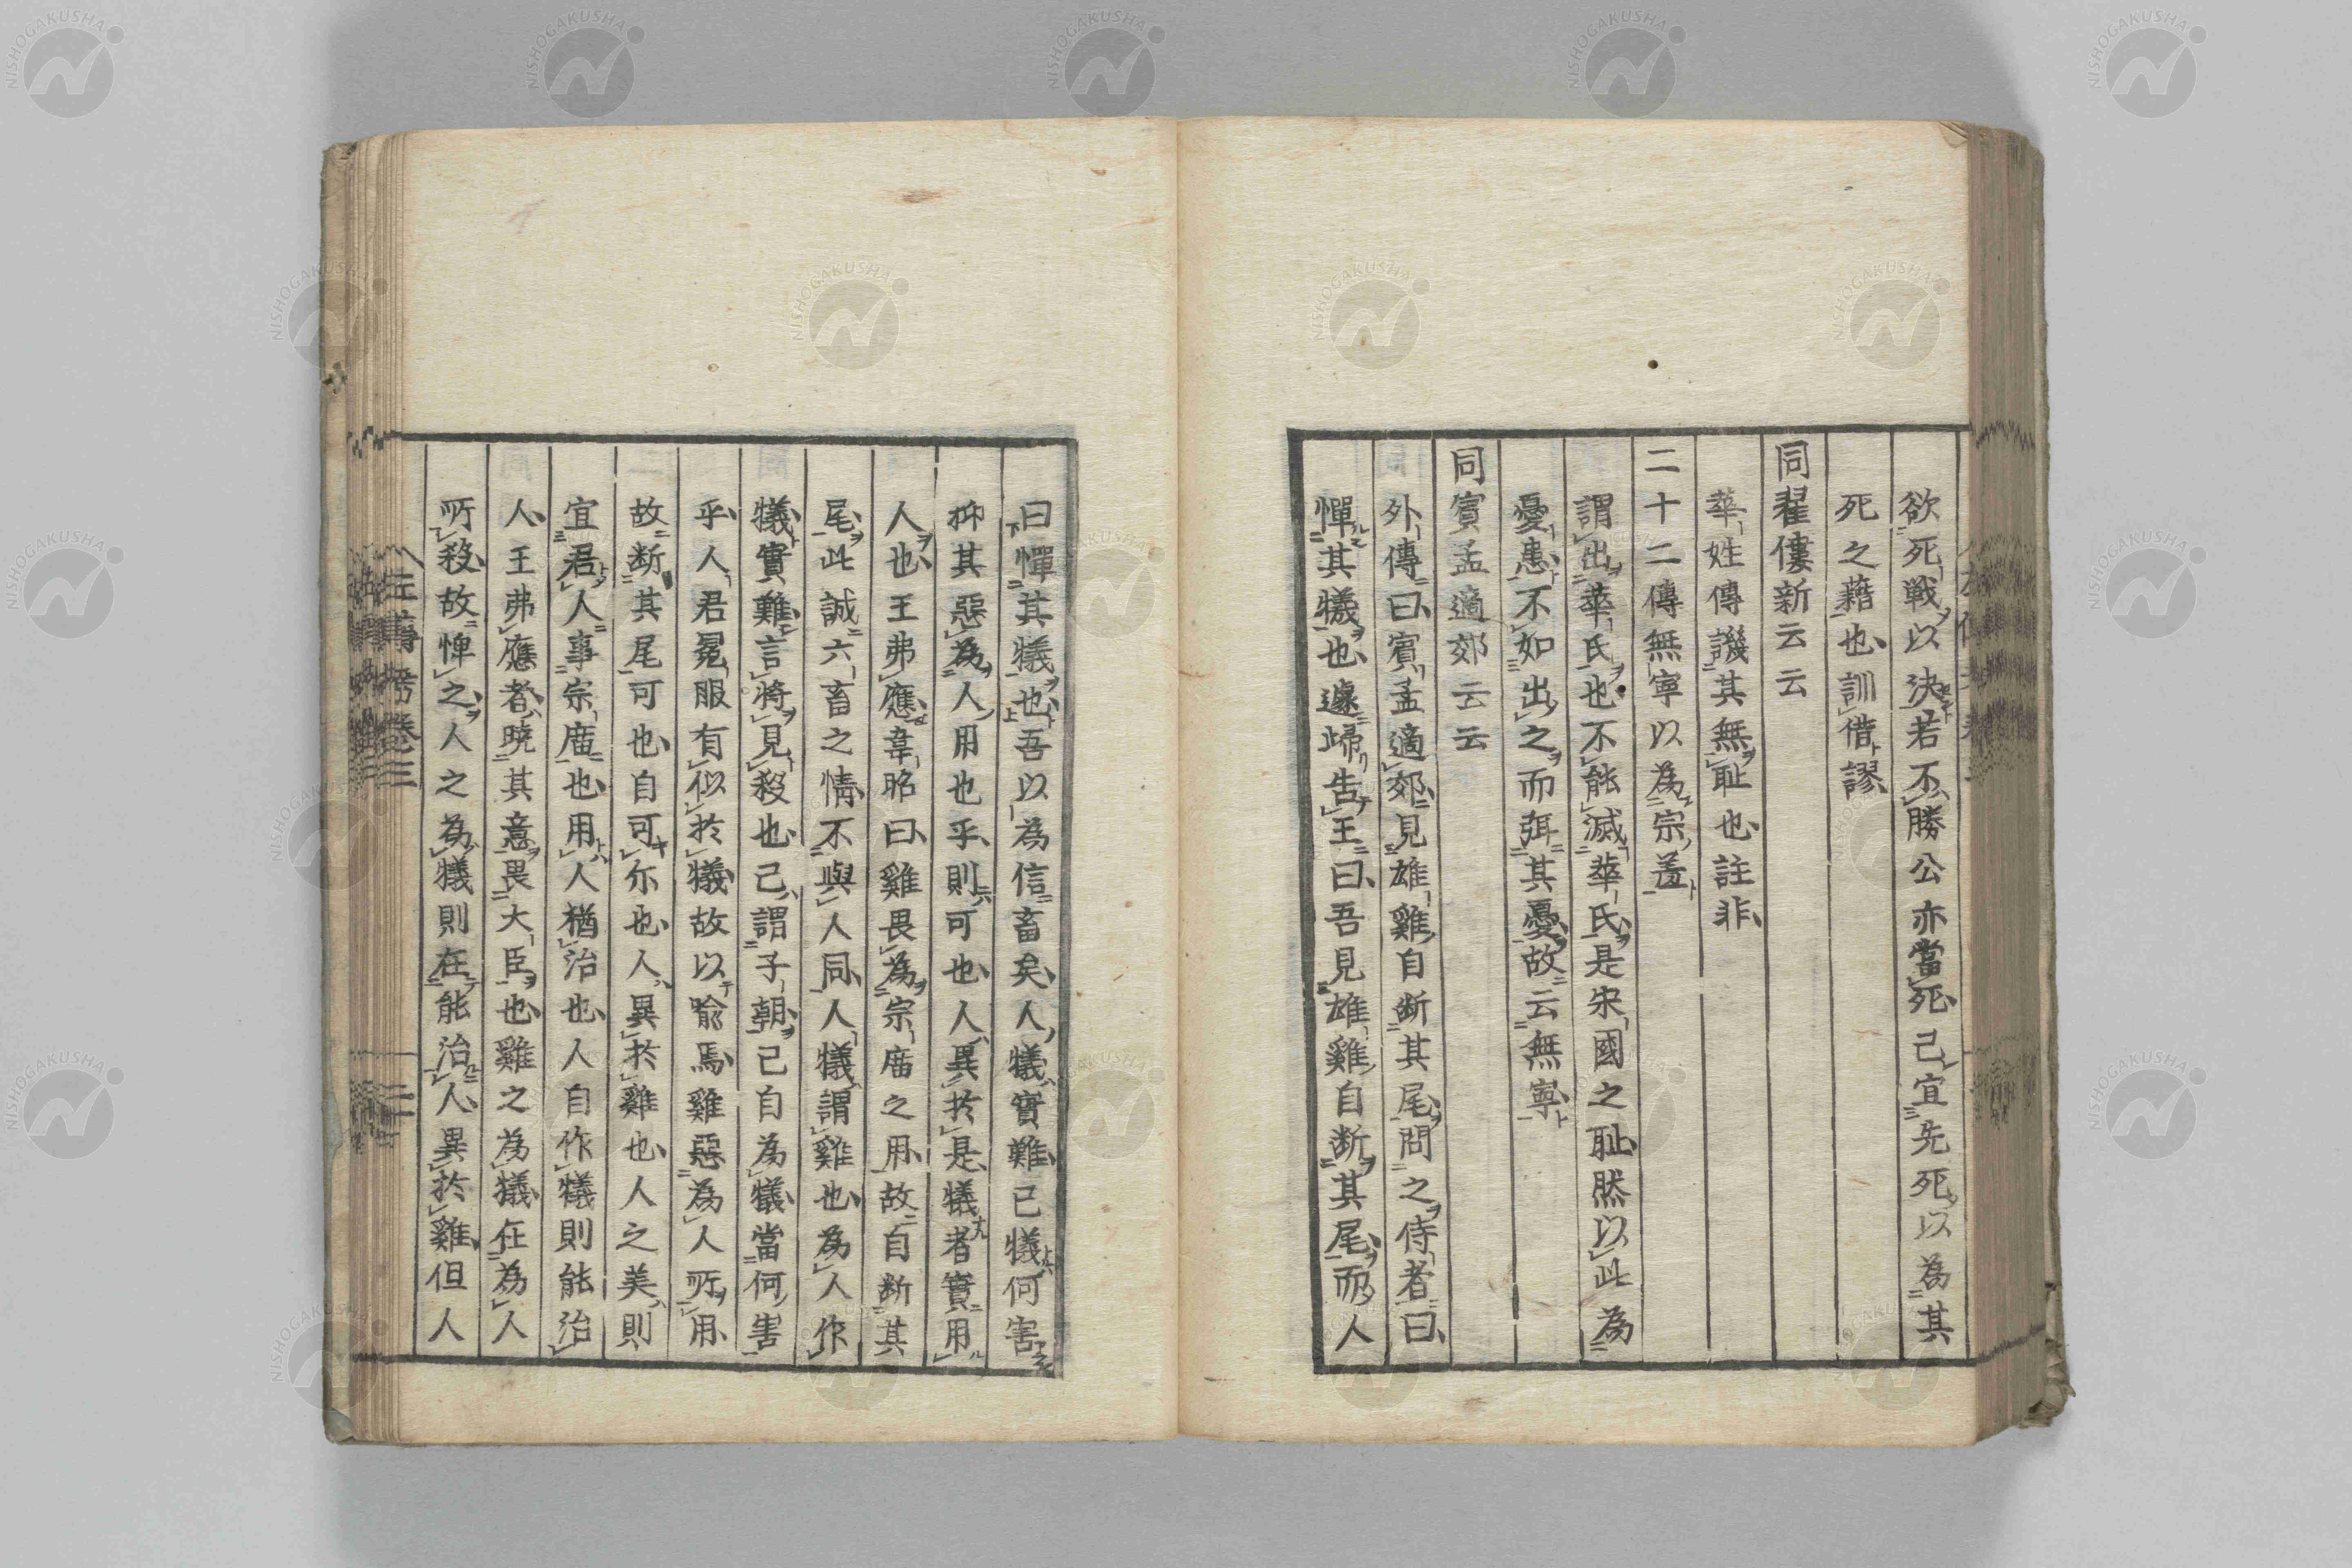 欲死戰以決若不勝公亦當死己宜先死以為其
死之藉也訓借謬
同翟僂新云云
華姓傳譏其無恥也註非
二十二傳無寧以為宗羞
謂出華氏也不能滅華氏是宋國之恥然以此為
憂患不如出之而弭其憂故云無寧
同賓孟適郊云云
外傳曰賓孟適郊見雄雞自断其尾問之侍者曰
憚其犠也遽歸告王曰吾見雄雞自断其尾而人
曰憚其犠也吾以為信畜矣人犠實難已犠何害
抑其惡為人用也乎則可也人異於是犠者實用
人也王弗應韋昭曰雞畏為宗廟之用故自断其
尾此誠六畜之情不與人同人犠謂雞也為人作
犠實難言将見殺也己謂子朝已自為犠當何害
乎人君冕服有似於犠故以喩焉雞惡為人所用
故断其尾可也自可尓也人異於雞也人之美則
宜君人事宗廟也用人猶治也人自作犠則能治
人王弗應者曉其意畏大臣也雞之為犠在為人
所殺故憚之人之為犠則在能治人異於雞但人
左傳考卷三
二
NISHOGAKUSHA